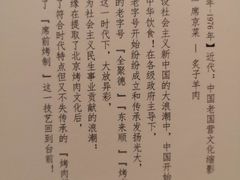 年－1976年】近代：中国老国营文化缩影
席京菜－炙子羊肉
设社会主义新中国的大浪潮中，中国开始
中华饮食！在各级政府主导下，
老字号开始纷纷成立和传承发扬光大，
的老字号『全聚德』『东来顺』『烤
这一时代下，大放异彩，
为社会主义民生事业贡献的浪潮：
缘在提取了北京烤肉文化后，
了符合时代特点但又不失传承的『烤
了『席前烤制』这一技艺回到台前！